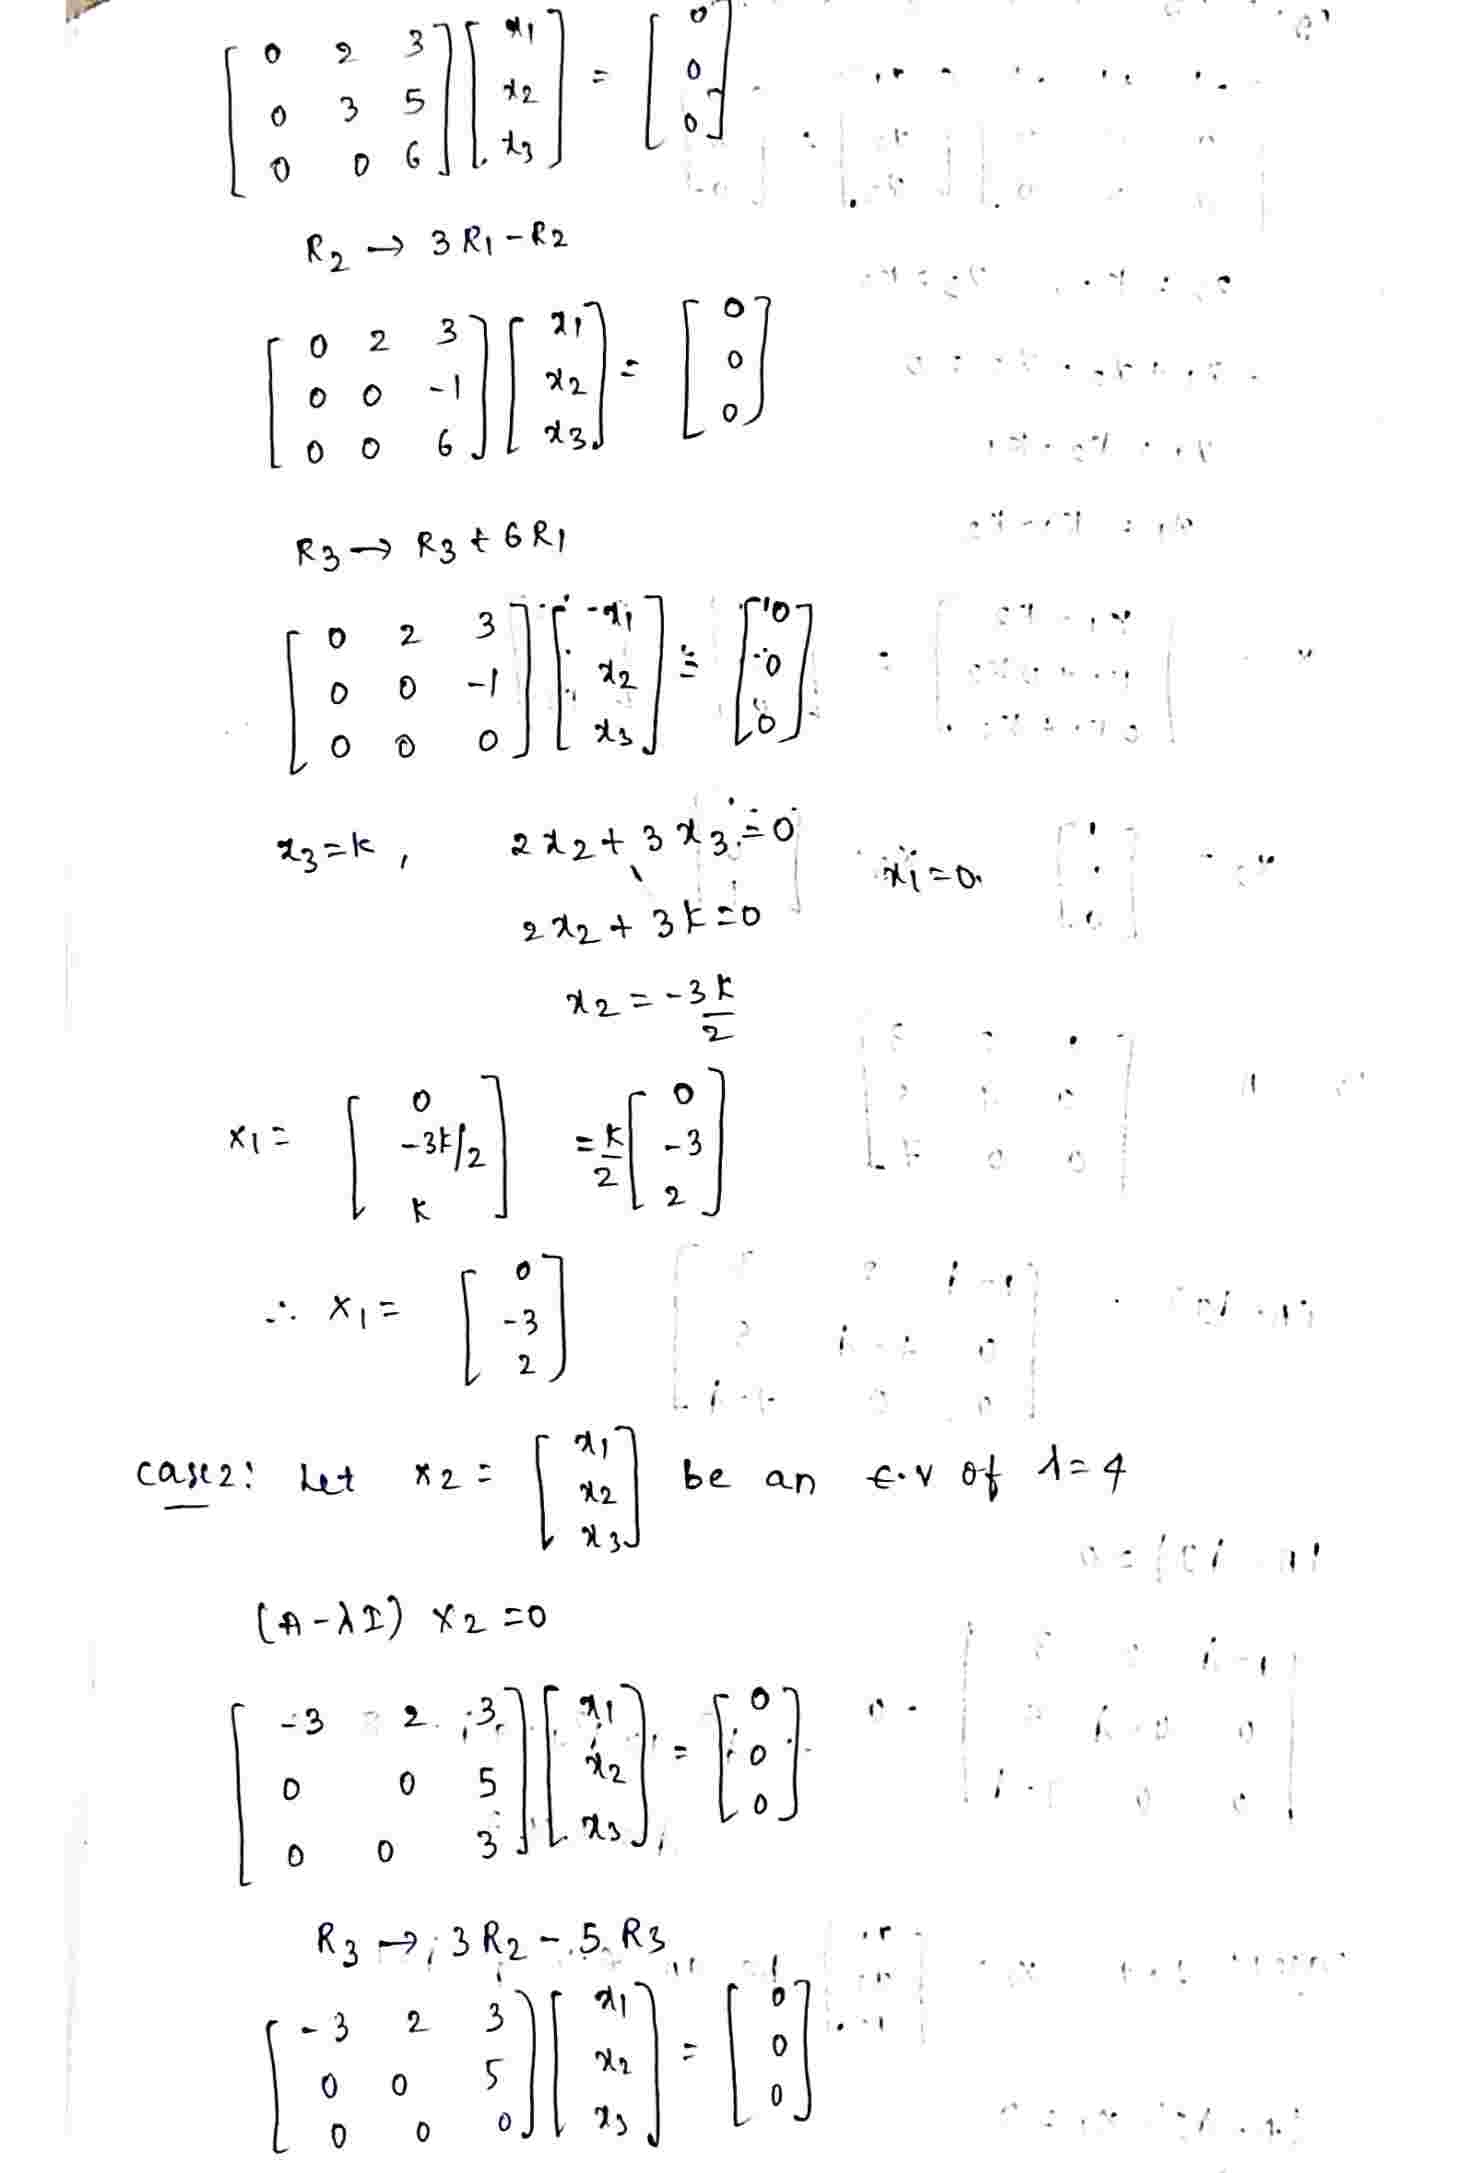 [0 2 3; 0 3 5; 0 0 6] [x1; x2; x3] = [0; 0; 0]
R2 → 3R1 - R2
[0 2 3; 0 0 -1; 0 0 6] [x1; x2; x3] = [0; 0; 0]
R3 → R3 + 6R1
[0 2 3; 0 0 -1; 0 0 0] [x1; x2; x3] = [0; 0; 0]
x3 = k, 2x2 + 3x3 = 0 x1 = 0
2x2 + 3k = 0
x2 = -3k/2
x1 = [0; -3k/2; k] = k/2 [0; -3; 2]
∴ x1 = [0; -3; 2]
case2: Let x2 = [x1; x2; x3] be an E.V of λ=4
(A-λI) x2 = 0
[-3 2 3; 0 0 5; 0 0 3] [x1; x2; x3] = [0; 0; 0]
R3 → 3R2 - 5R3
[-3 2 3; 0 0 5; 0 0 0] [x1; x2; x3] = [0; 0; 0]